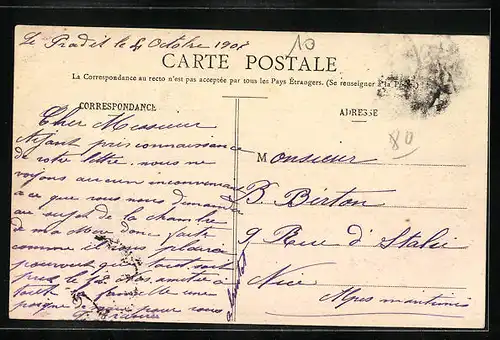 Le Pradet le 4 Octobre 190
10
CARTE POSTALE
La Correspondance au recto n'est pas acceptée par tous les Pays Étrangers. (Se renseigner à la Poste.)
CORRESPONDANCE
ADRESSE
80
Cher Monsieur
Ayant pris connaissance
de votre lettre nous ne
voyons aucun inconvenant
a ce que vous nous demandez
au sujet de la chambre
de ma donc faite
comme il vous plaira
pourvu que tout soit
pret le 12. amitiés a
toute la famille une
poigne de pour vous
Monsieur
B. Berton
9 Rue d'Italie
Nice
Alpes maritimes